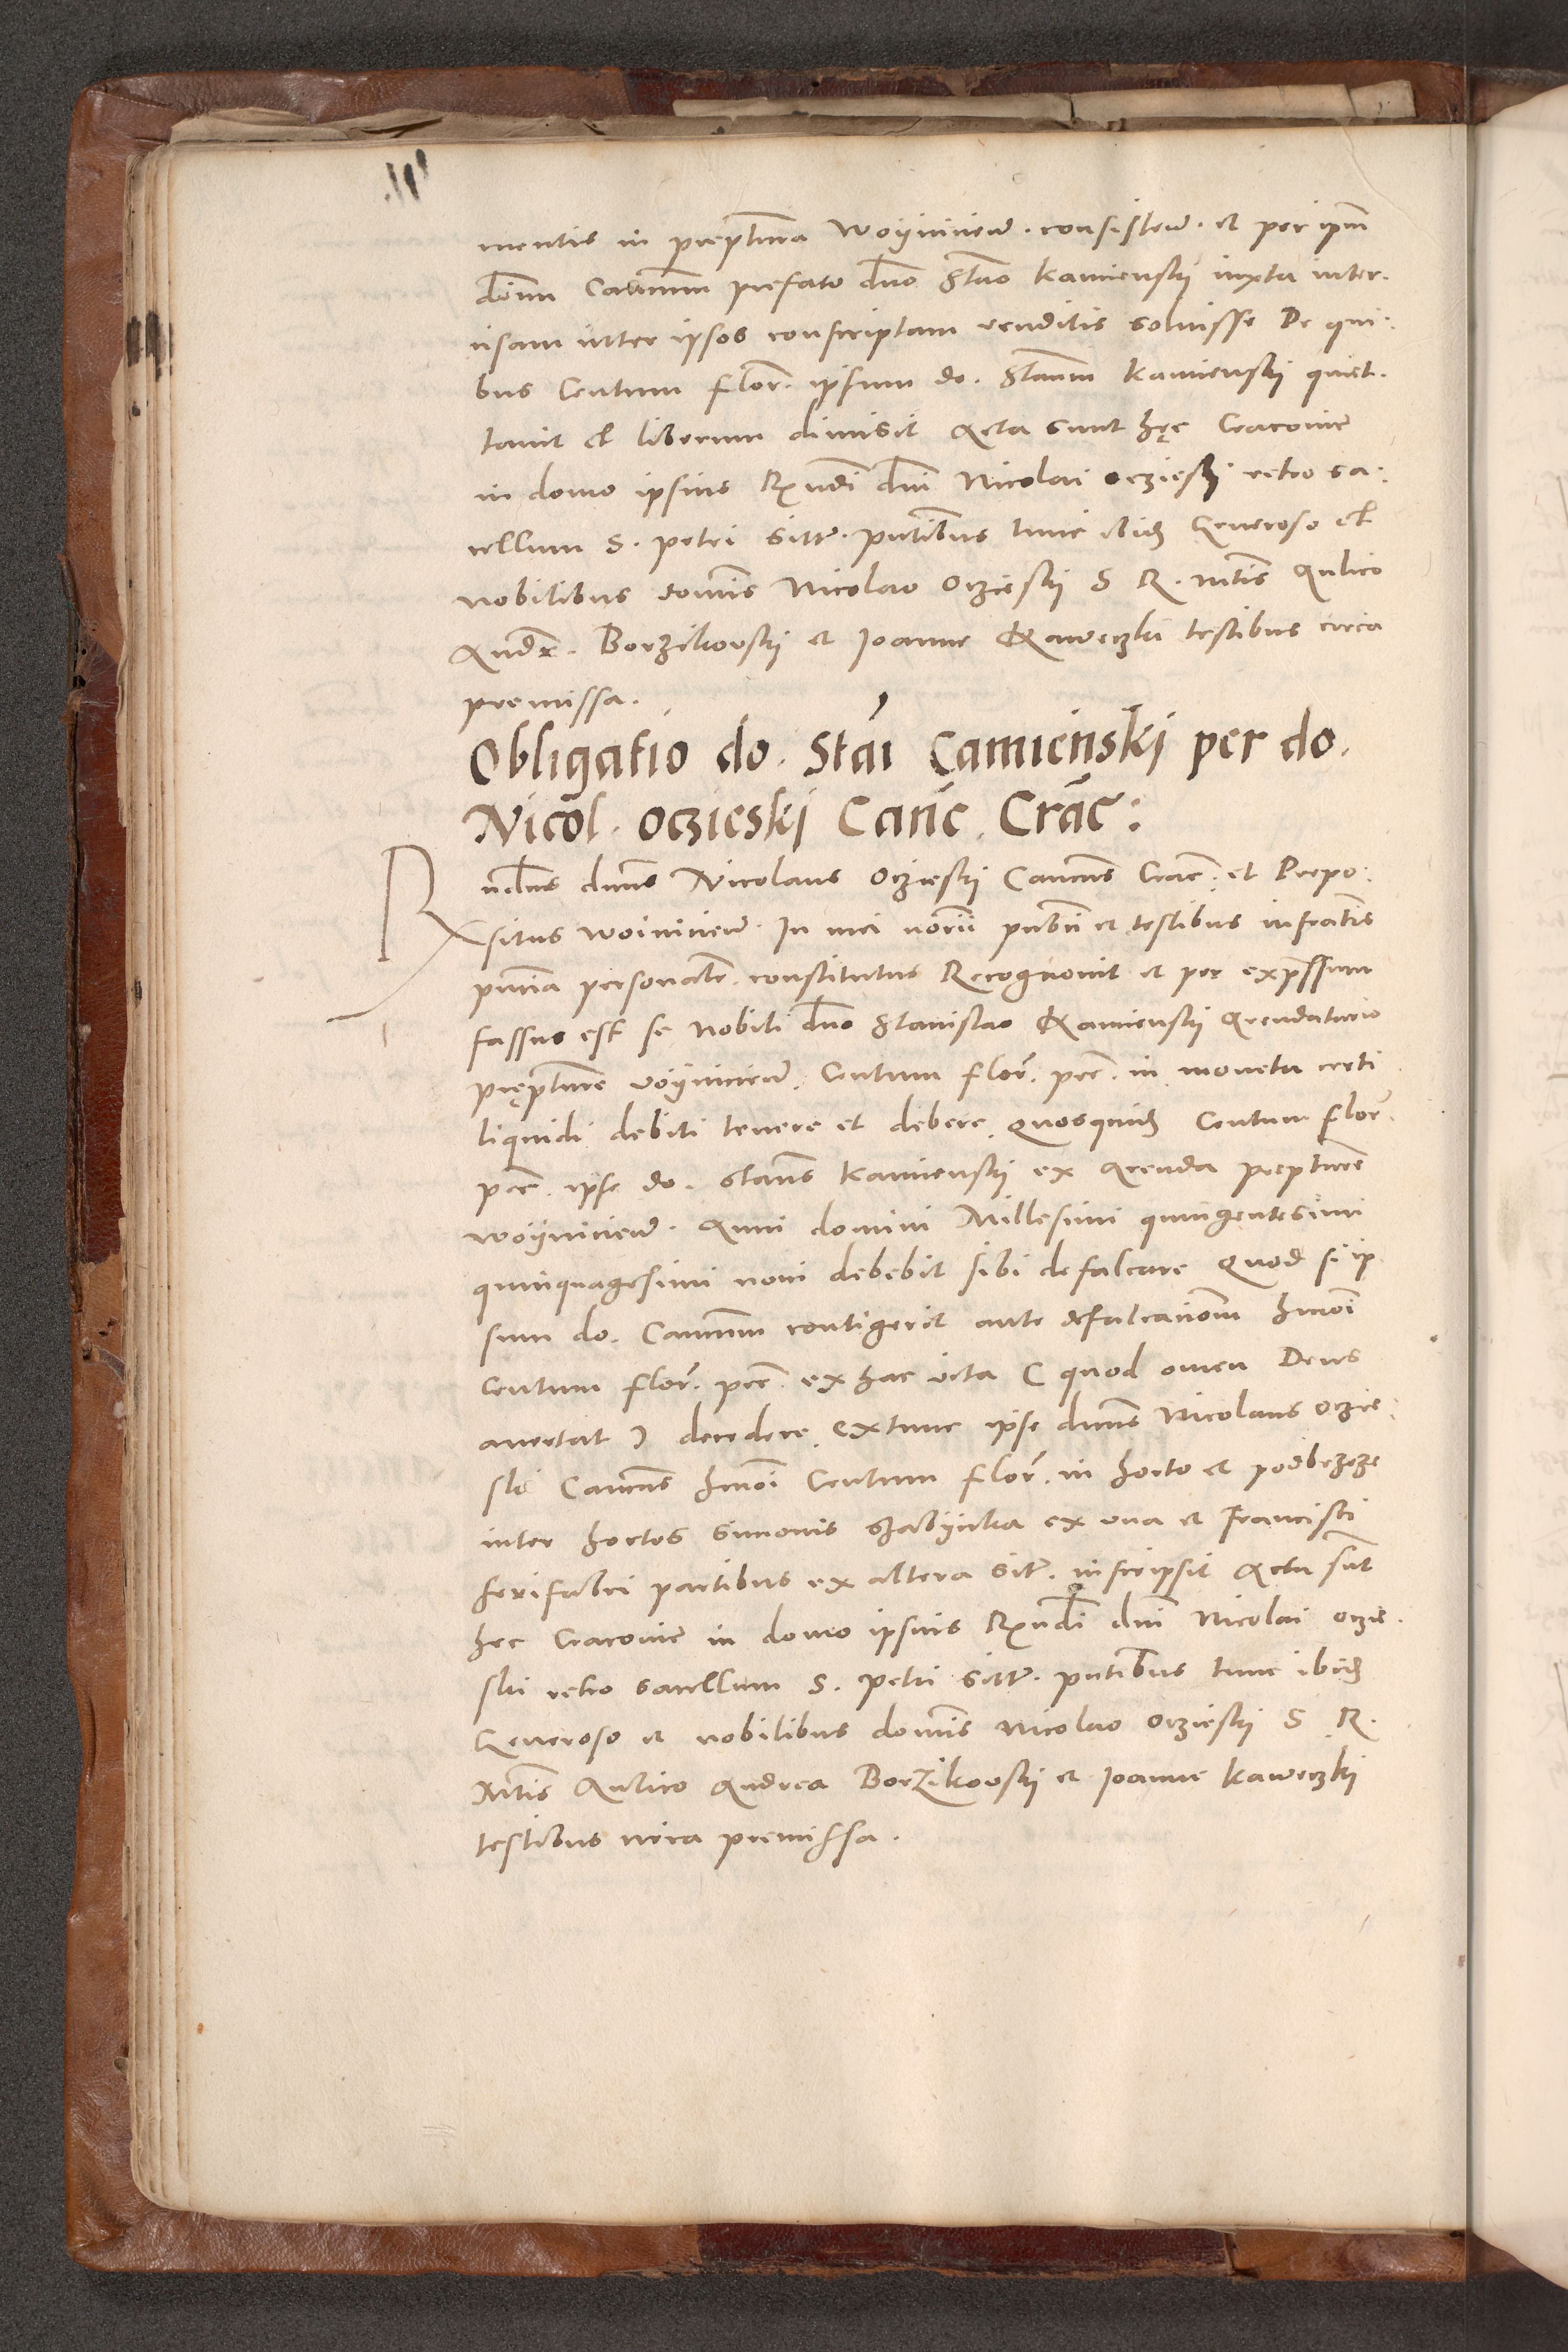 mentis in prepturra Woyniciens. consisten. et per ipm
dnum Canunm prefato dno Stano Kamienskj iuxta inter-
cisam inter ipsos conscriptam venditis soluisse De qui-
bus Centum flor. ipsum do. Stanm Kamienskj quiet-
tauit et liberum dimisit Acta sunt hęc Cracouie
in domo ipsius Rxndi dni Nicolai oczieskj retro sa-
cellum S. petri sitt. pntibus tunc ibid Generoso et
nobilibus domis Nicolao Oczieskj S R. mtis Aulico
Andr. Borzikouskj et Joanne Kaweczki testibus circa
premissa.
Obligatio do. Stai Camienski per do.
Nicol. oczieski Canc. Crac:
Rxndus dnus Nicolaus Oczieskj Cancus Crac. et Prepo-
situs woiniciens. In mei norii publici et testibus infratis
pntia personalr constitutus Recognouit et per expressum
fassus est se Nobili dno Stanislao Kamienskj Arendatario
prępture voyniciens. Centum flor. pec. in moneta certi
liquidi debiti tenere et debere. quosquid Centum flor.
pec. ipse do. Stanus Kamienskj ex Arenda prepture
woyniciens. Anni domini Millesimi quingentesimi
quinquagesimi noni debebit sibi defalcare Quod si ip
sum do. Canunm contigerit ante defalcationem hmoi
Centum flor. pec. ex hac vita ( quod omen Deus
auertat ) decedere. extunc ipse dnus Nicolaus oczie-
ski Canus hmoi Centum flor. in horto et podbrzeze
inter hortos simonis szabynka ex vna et Francisci
ferifabri partibus ex altera sit. inscripsit Acta sut
hec Cracouie in domo ipsius Rxndi dni Nicolai oczie-
ski retro sacellum S. petri sitt. pntibus tunc ibid
Generoso et nobilibus domis Nicolao Oczieskj S R.
Mtis Aulico Andrea Borzikouskj et Joanne Kaweczkj
testibus circa premissa.